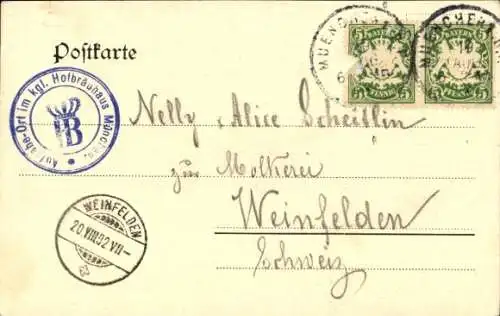 Postkarte
MUENCHEN
5 BAYERN 5
MUENCHEN
5 BAYERN 5
Aufgabe-Ort im Kgl. Hofbräuhaus München.
HB
Nelly & Alice Scheitlin
zur Molkerei
Weinfelden
Schweiz
WEINFELDEN
20.VIII.02.VII-